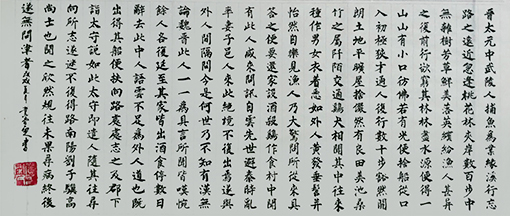 晉太元中武陵人捕魚為業緣溪行忘
路之遠近忽逢桃花林夾岸數百步中
無雜樹芳草鮮美落英繽紛漁人甚異
之復前行欲窮其林林盡水源便得一
山山有小口彷彿若有光便捨船從口
入初極狹才通人復行數十步豁然開
朗土地平曠屋捨儼然有良田美池桑
竹之屬阡陌交通鷄犬相聞其中往來
種作男女衣着悉如外人黃發垂髫並
怡然自樂見漁人乃大驚問所從來具
答之便要還家設酒殺鷄作食村中聞
有此人咸來問訊自雲先世避秦時亂
率妻子邑人來此絕境不復出焉遂與
外人間隔問今是何世乃不知有漢無
論魏晉此人一一為具言所聞皆嘆惋
餘人各復延至其家皆出酒食停數日
辭去此中人語雲不足為外人道也既
出得其船便扶向路處處志之及郡下
詣太守說如此太守即遣人隨其往尋
向所志遂迷不復得路南陽劉子驥高
尚士也聞之欣然規往未果尋病終後
遂無問津者